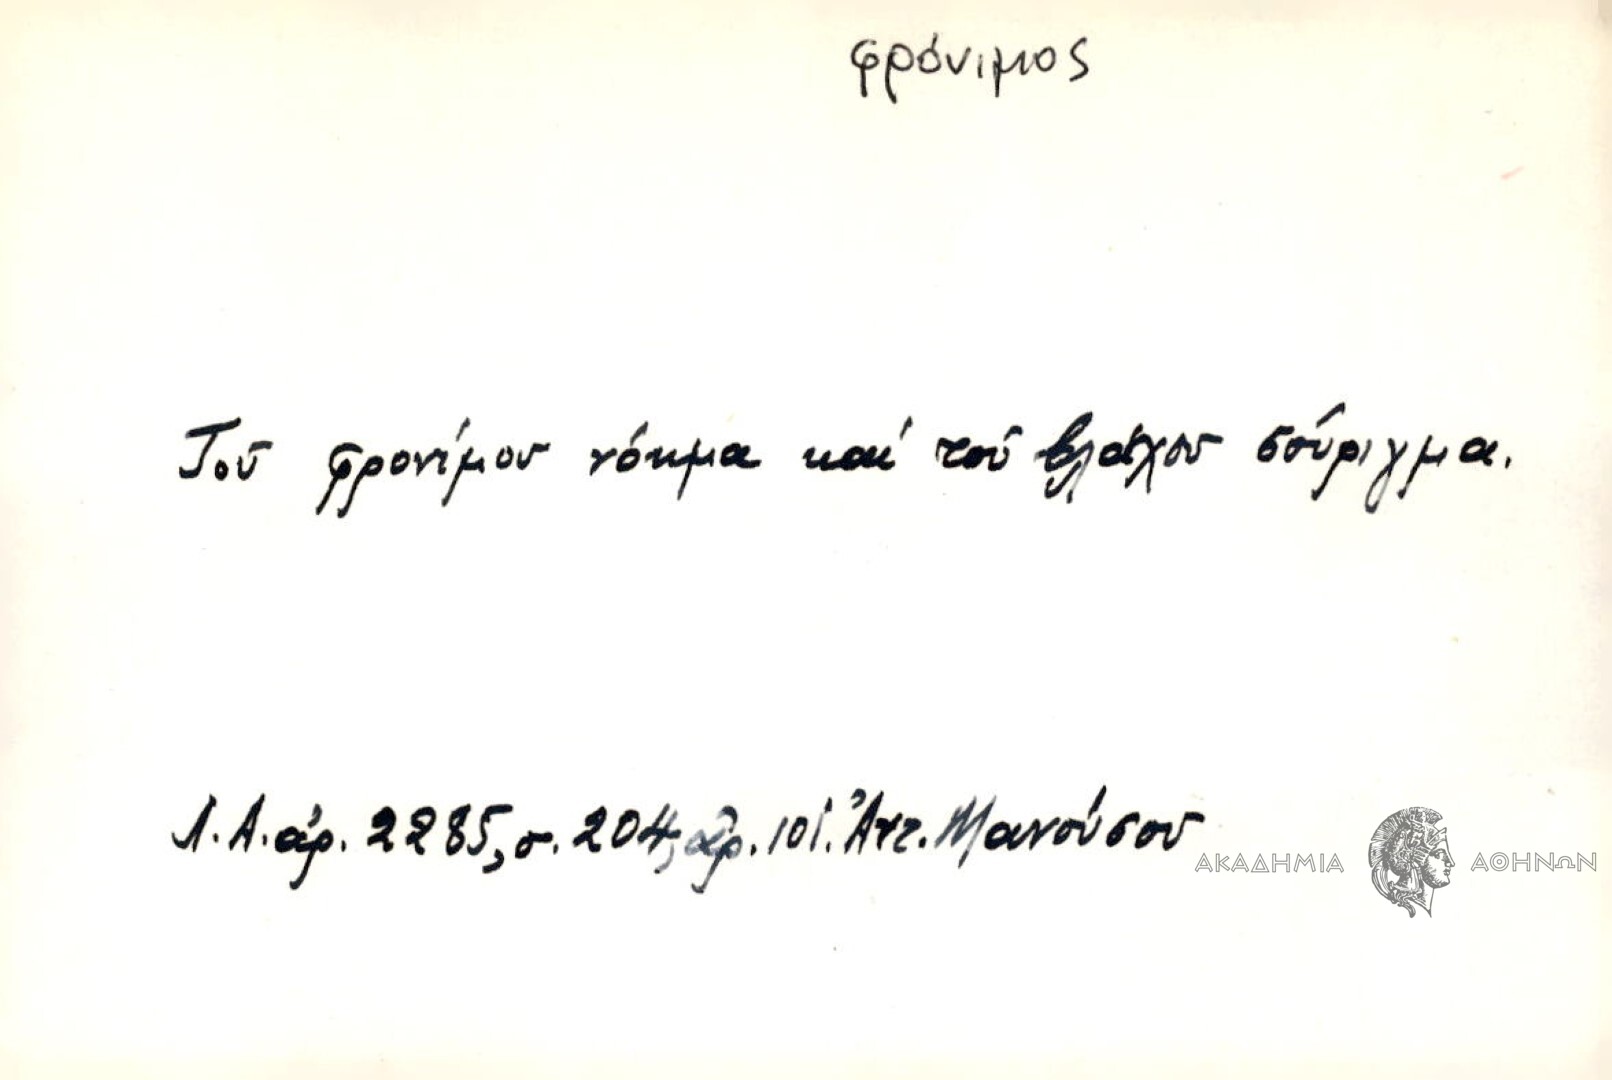 φρόνιμος
Τοῦ φρονίμου νόημα καί τοῦ βλάχου σούριγμα.
Λ.Α. ἀρ. 2285, σ. 204, ἀρ. 101. Ἀντ. Μανούσου
ΑΚΑΔΗΜΙΑ ΑΘΗΝΩΝ